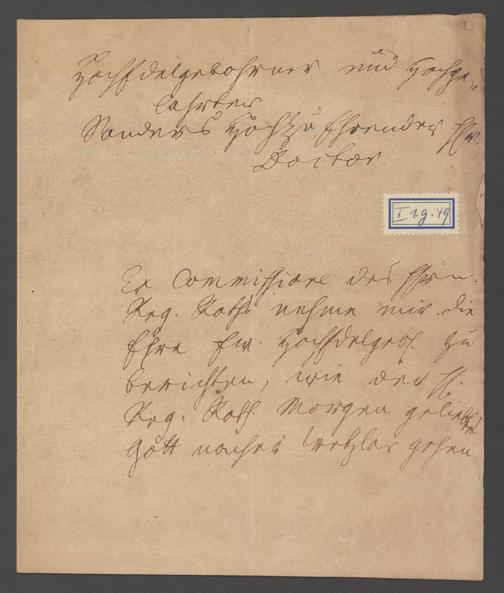 HochEdelgebohrner und Hochge-
lahrter
Sonders HochzuEhrender Hr.
Doctor.
I 1.g.49
Ex Commissione des Hrn.
Reg. Raths nehme mir die
Ehre Ew. HochEdelgeb. zu
berichten, wie der H.
Reg. Rath Morgen geliebts
Gott nacher Wetzlar gehen